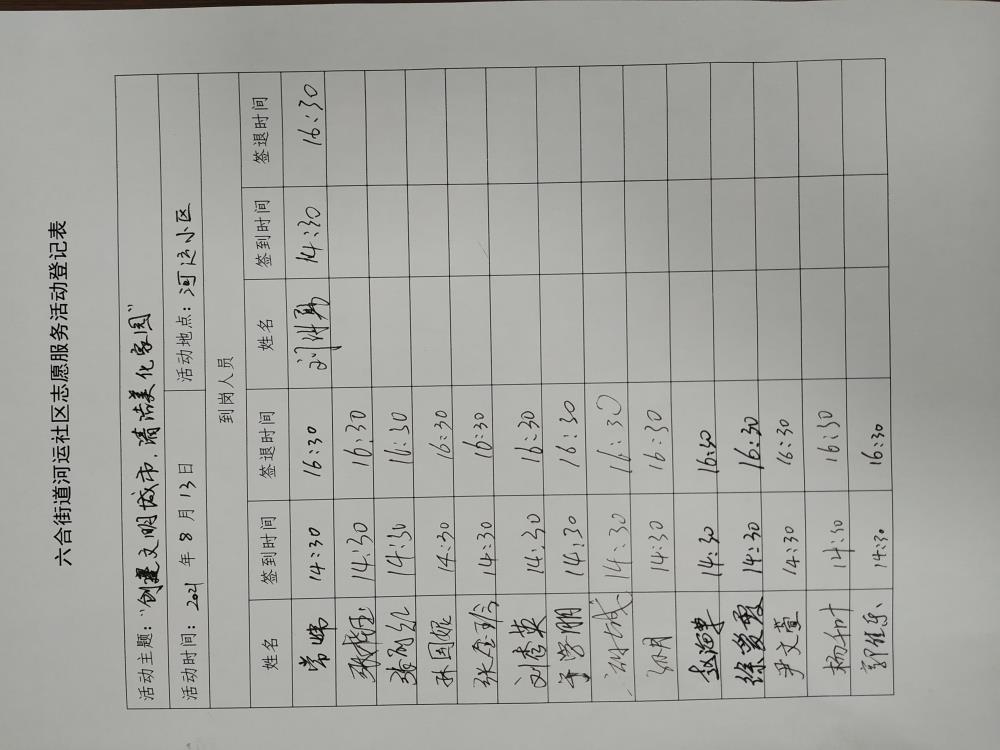 六合街道河运社区志愿服务活动登记表
活动主题："创建文明城市，清洁美化家园"
活动时间：2021 年 8 月 13 日 活动地点：河运小区
到岗人员
姓名 签到时间 签退时间 姓名 签到时间 签退时间
14:30 16:30 14:30 16:30
14:30 16:30
14:30 16:30
14:30 16:30
14:30 16:30
刘秀英 14:30 16:30
14:30 16:30
14:30 16:30
14:30 16:30
14:30 16:30
徐爱霞 14:30 16:30
尹文萱 14:30 16:30
14:30 16:30
14:30 16:30